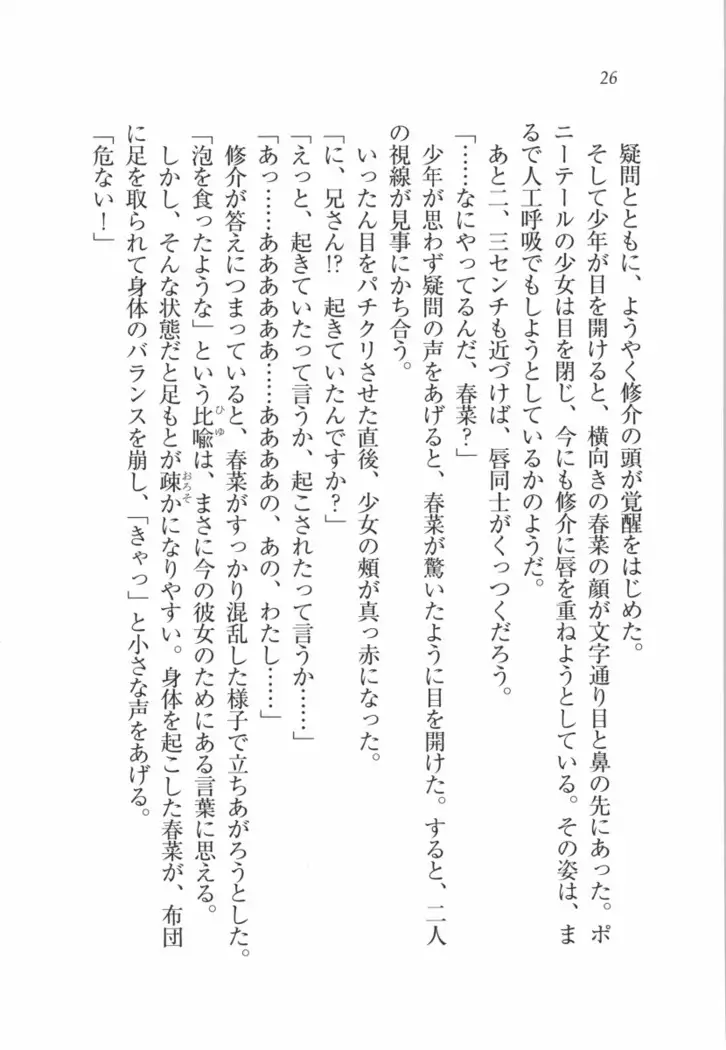 26
疑問とともに、ようやく修介の頭が覚醒をはじめた。
そして少年が目を開けると、横向きの春菜の顔が文字通り目と鼻の先にあった。ポ
ニーテールの少女は目を閉じ、今にも修介に唇を重ねようとしている。その姿は、ま
るで人工呼吸でもしようとしているかのようだ。
あと二、三センチも近づけば、唇同士がくっつくだろう。
「……なにやってるんだ、春菜？」
少年が思わず疑問の声をあげると、春菜が驚いたように目を開けた。すると、二人
の視線が見事にかち合う。
いったん目をパチクリさせた直後、少女の頰が真っ赤になった。
「に、兄さん!?　起きていたんですか？」
「えっと、起きていたって言うか、起こされたって言うか……」
「あっ……ああああああ……ああああの、あの、わたし……」
修介が答えにつまっていると、春菜がすっかり混乱した様子で立ちあがろうとした。
「泡を食ったような」という比喩ひゆは、まさに今の彼女のためにある言葉に思える。
しかし、そんな状態だと足もとが疎おろそかになりやすい。身体を起こした春菜が、布団
に足を取られて身体のバランスを崩し、「きゃっ」と小さな声をあげる。
「危ない！」